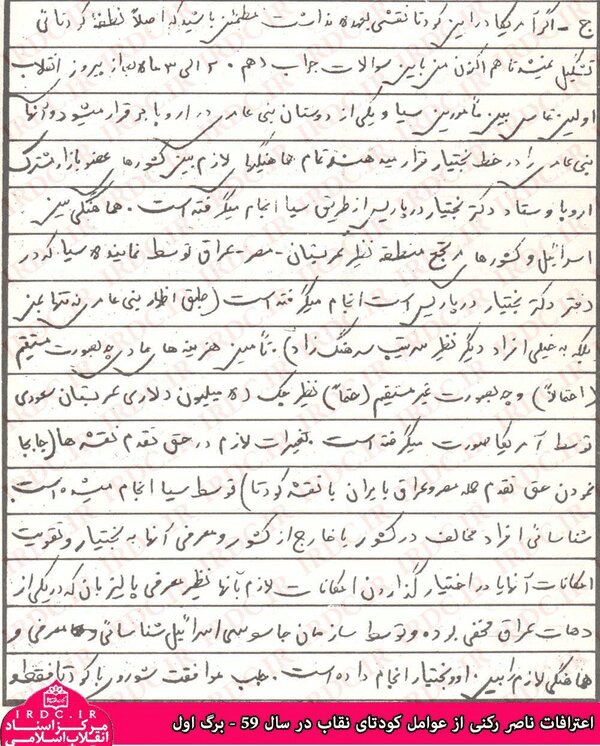 ج - اگر آمریکا در این کودتا نقشی بعهده نداشت مطمئن باشید که اصلاً نطفه کودتائی
تشکیل نمیشد تا هم اکنون من باین سوالات جواب دهم. ۲ الی ۳ ماه بعد از پیروزی انقلاب
اولین تماس بین مأمورین سیا و یکی از دوستان بنی عامری در اروپا برقرار میشود و آنها
بنی عامری را در خط بختیار قرار میدهند تمام هماهنگیهای لازم بین کشورهای عضو بازار مشترک
اروپا و ستاد دکتر بختیار در پاریس از طریق سیا انجام میگرفته است. هماهنگی بین
اسرائیل و کشورهای مرتجع منطقه نظیر عربستان - مصر - عراق توسط نماینده سیا که در
دفتر دکتر بختیار در پاریس است انجام میگرفته است (طبق اظهار بنی عامری نه تنها بمن
بلکه به خیلی افراد دیگر نظیر سرتیپ سرهنگ زاد). تأمین هزینه های مادی چه بصورت مستقیم
(احتمالاً) و چه بصورت غیر مستقیم (حتماً) نظیر چک ۵ میلیون دلاری عربستان سعودی
توسط آمریکا صورت میگرفته است. تغییرات لازم در حق تقدم نقشه ها (جابجا
نمودن حق تقدم حمله مصر و عراق با ایران با نقشه کودتا) توسط سیا انجام میشده است
شناسائی افراد مخالف در کشور یا خارج از کشور و معرفی آنها به بختیار و تقویت
امکانات آنها یا در اختیار گذاردن امکانات لازم بآنها نظیر معرفی پالیزبان که در یکی از
دهات عراق مخفی بوده و توسط سازمان جاسوسی اسرائیل شناسائی و معرفی و
هماهنگی لازم را بین او و بختیار انجام داده است. جلب موافقت شوروی با کودتا فقط و
IRDC.IR
مرکز اسناد انقلاب اسلامی
اعترافات ناصر رکنی از عوامل کودتای نقاب در سال 59 - برگ اول